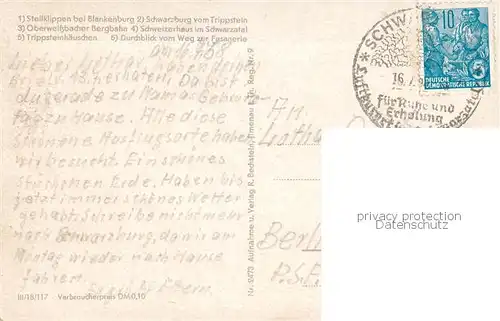 1) Steilklippen bei Blankenburg 2) Schwarzburg vom Trippstein
3) Oberweißbacher Bergbahn 4) Schweizerhaus im Schwarzatal
5) Trippsteinhäuschen 6) Durchblick vom Weg zur Fasanerie
Lieber Lothar, haben deinen
Brief erhalten. Da bist
du gerade zu Mamas Geburts
tag zu Hause. Alle diese
schönen Ausflugsorte haben
wir besucht. Ein schönes
Stückchen Erde. Haben bis
jetzt immer schönes Wetter
gehabt. Schreibe nicht mehr
nach Schwarzburg, da wir am
Montag wieder nach Hause
fahren.
III/18/117 Verbraucherpreis DM 0,10
Nr. 2473 Aufnahme u. Verlag R. Bechstein, Ilmenau i. Th. Reg.-Nr. 9
An
Lothar
Berlin
SCHWA
16.7.
für Ruhe und
Erholung
10
DEUTSCHE
DEMOKRATISCHE REPUBLIK
5
property protection
www.oldthing.de